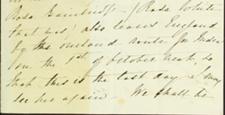 Rosa (Rosa White
that was) also leaves England
by the overland route for India
on the 9th of October next, so
that this is the last day I may
see her again. We shall be